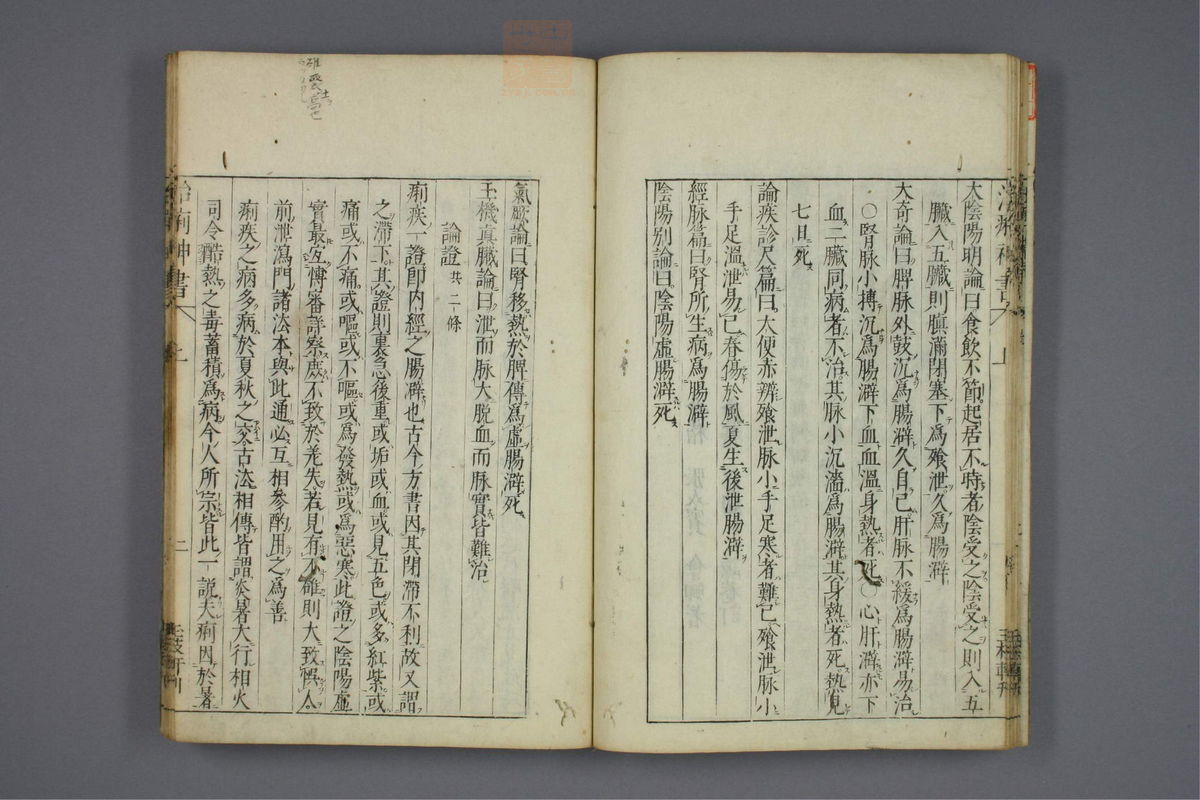 太陰陽明論曰食飲不節起居不時者陰受之陰受之則入五
臟入五臟則䐜滿閉塞下為飱泄久為腸澼
大奇論曰脾脉外鼓沉為腸澼久自已肝脉小緩為腸澼易治
○腎脉小搏沉為腸澼下血血溫身熱者死○心肝澼亦下
血二臟同病者不治其脉小沉濇為腸澼其身熱者死熱見
七日死
論疾診尺篇曰大便赤瓣飱泄脉小手足寒者難已飱泄脉小
手足溫泄易已春傷於風夏生後泄腸澼
經脉篇曰腎所生病為腸澼
陰陽别論曰陰陽虛腸澼死
氣厥論曰腎移熱於脾傳為虛腸澼死
玉機真臟論曰泄而脉大脱血而脉實皆難治
論證共二條
痢疾一證即内經之腸澼也古今方書因其閉滯不利故又謂
之滯下其證則裏急後重或垢或血或見五色或多紅紫或
痛或不痛或嘔或不嘔或為發熱或為惡寒此證之陰陽虛
實最宜慱審詳察庶不致於差失若見有不確則大致悞人
前泄瀉門諸法本與此通必互相參酌用之為善
痢疾之病多病於夏秋之交古法相傳皆謂炎暑大行相火
司令酷熱之毒蓄積為病今人所宗皆此一說夫痢因於暑
治痢神書
上
二